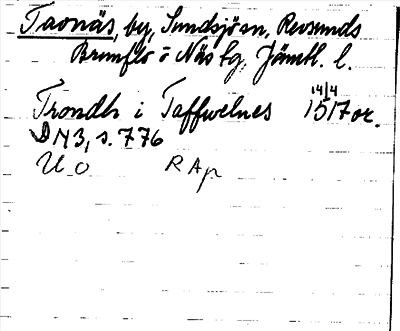 Tavnäs, by, Sundsjö sn, Revsunds
Brunflo o Näs tg, Jämtl. l.
Trondh i Taffwelnes 14/4 1517 or.
DN 3, s. 776
U O R Ap